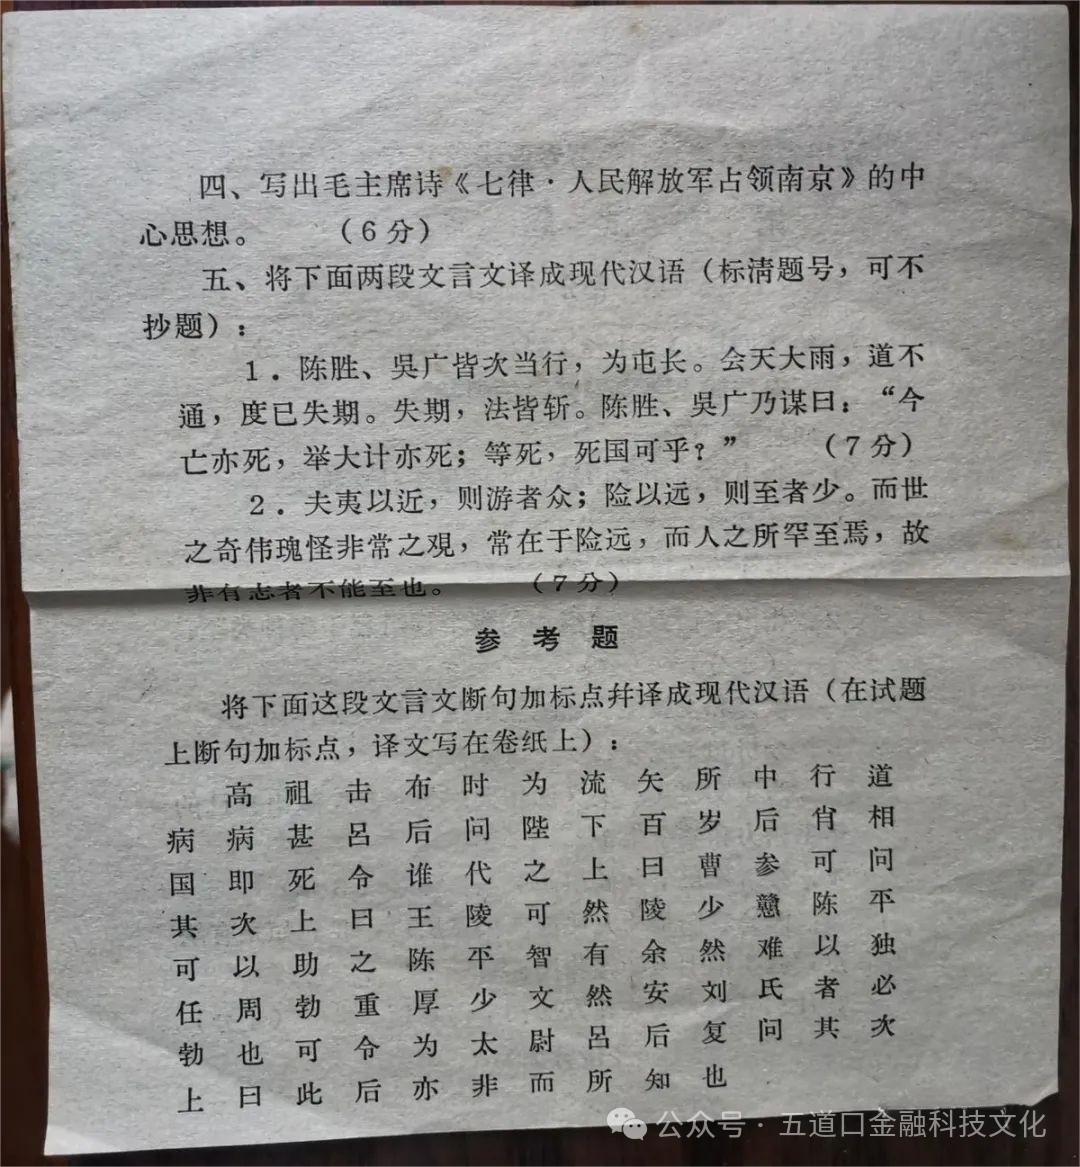 四、写出毛主席诗《七律·人民解放军占领南京》的中
心思想。 (6分)
五、将下面两段文言文译成现代汉语(标清题号,可不
抄题):
1.陈胜、吳广皆次当行,为屯长。会天大雨,道不
通,度已失期。失期,法皆斩。陈胜、吳广乃谋曰:“今
亡亦死,举大计亦死;等死,死国可乎?” (7分)
2.夫夷以近,则游者众;险以远,则至者少。而世
之奇伟瑰怪非常之覌,常在于险远,而人之所罕至焉,故
非有志者不能至也。 (7分)
参考题
将下面这段文言文断句加标点幷译成现代汉语(在试题
上断句加标点,译文写在卷纸上):
高祖击布时为流矢所中行道
病病甚吕后问陛下百岁后肖相
国即死令谁代之上曰曹参可问
其次上曰王陵可然陵少戆陈平
可以助之陈平智有余然难以独
任周勃重厚少文然安刘氏者必
勃也可令为太尉吕后复问其次
上曰此后亦非而所知也
公众号·五道口金融科技文化